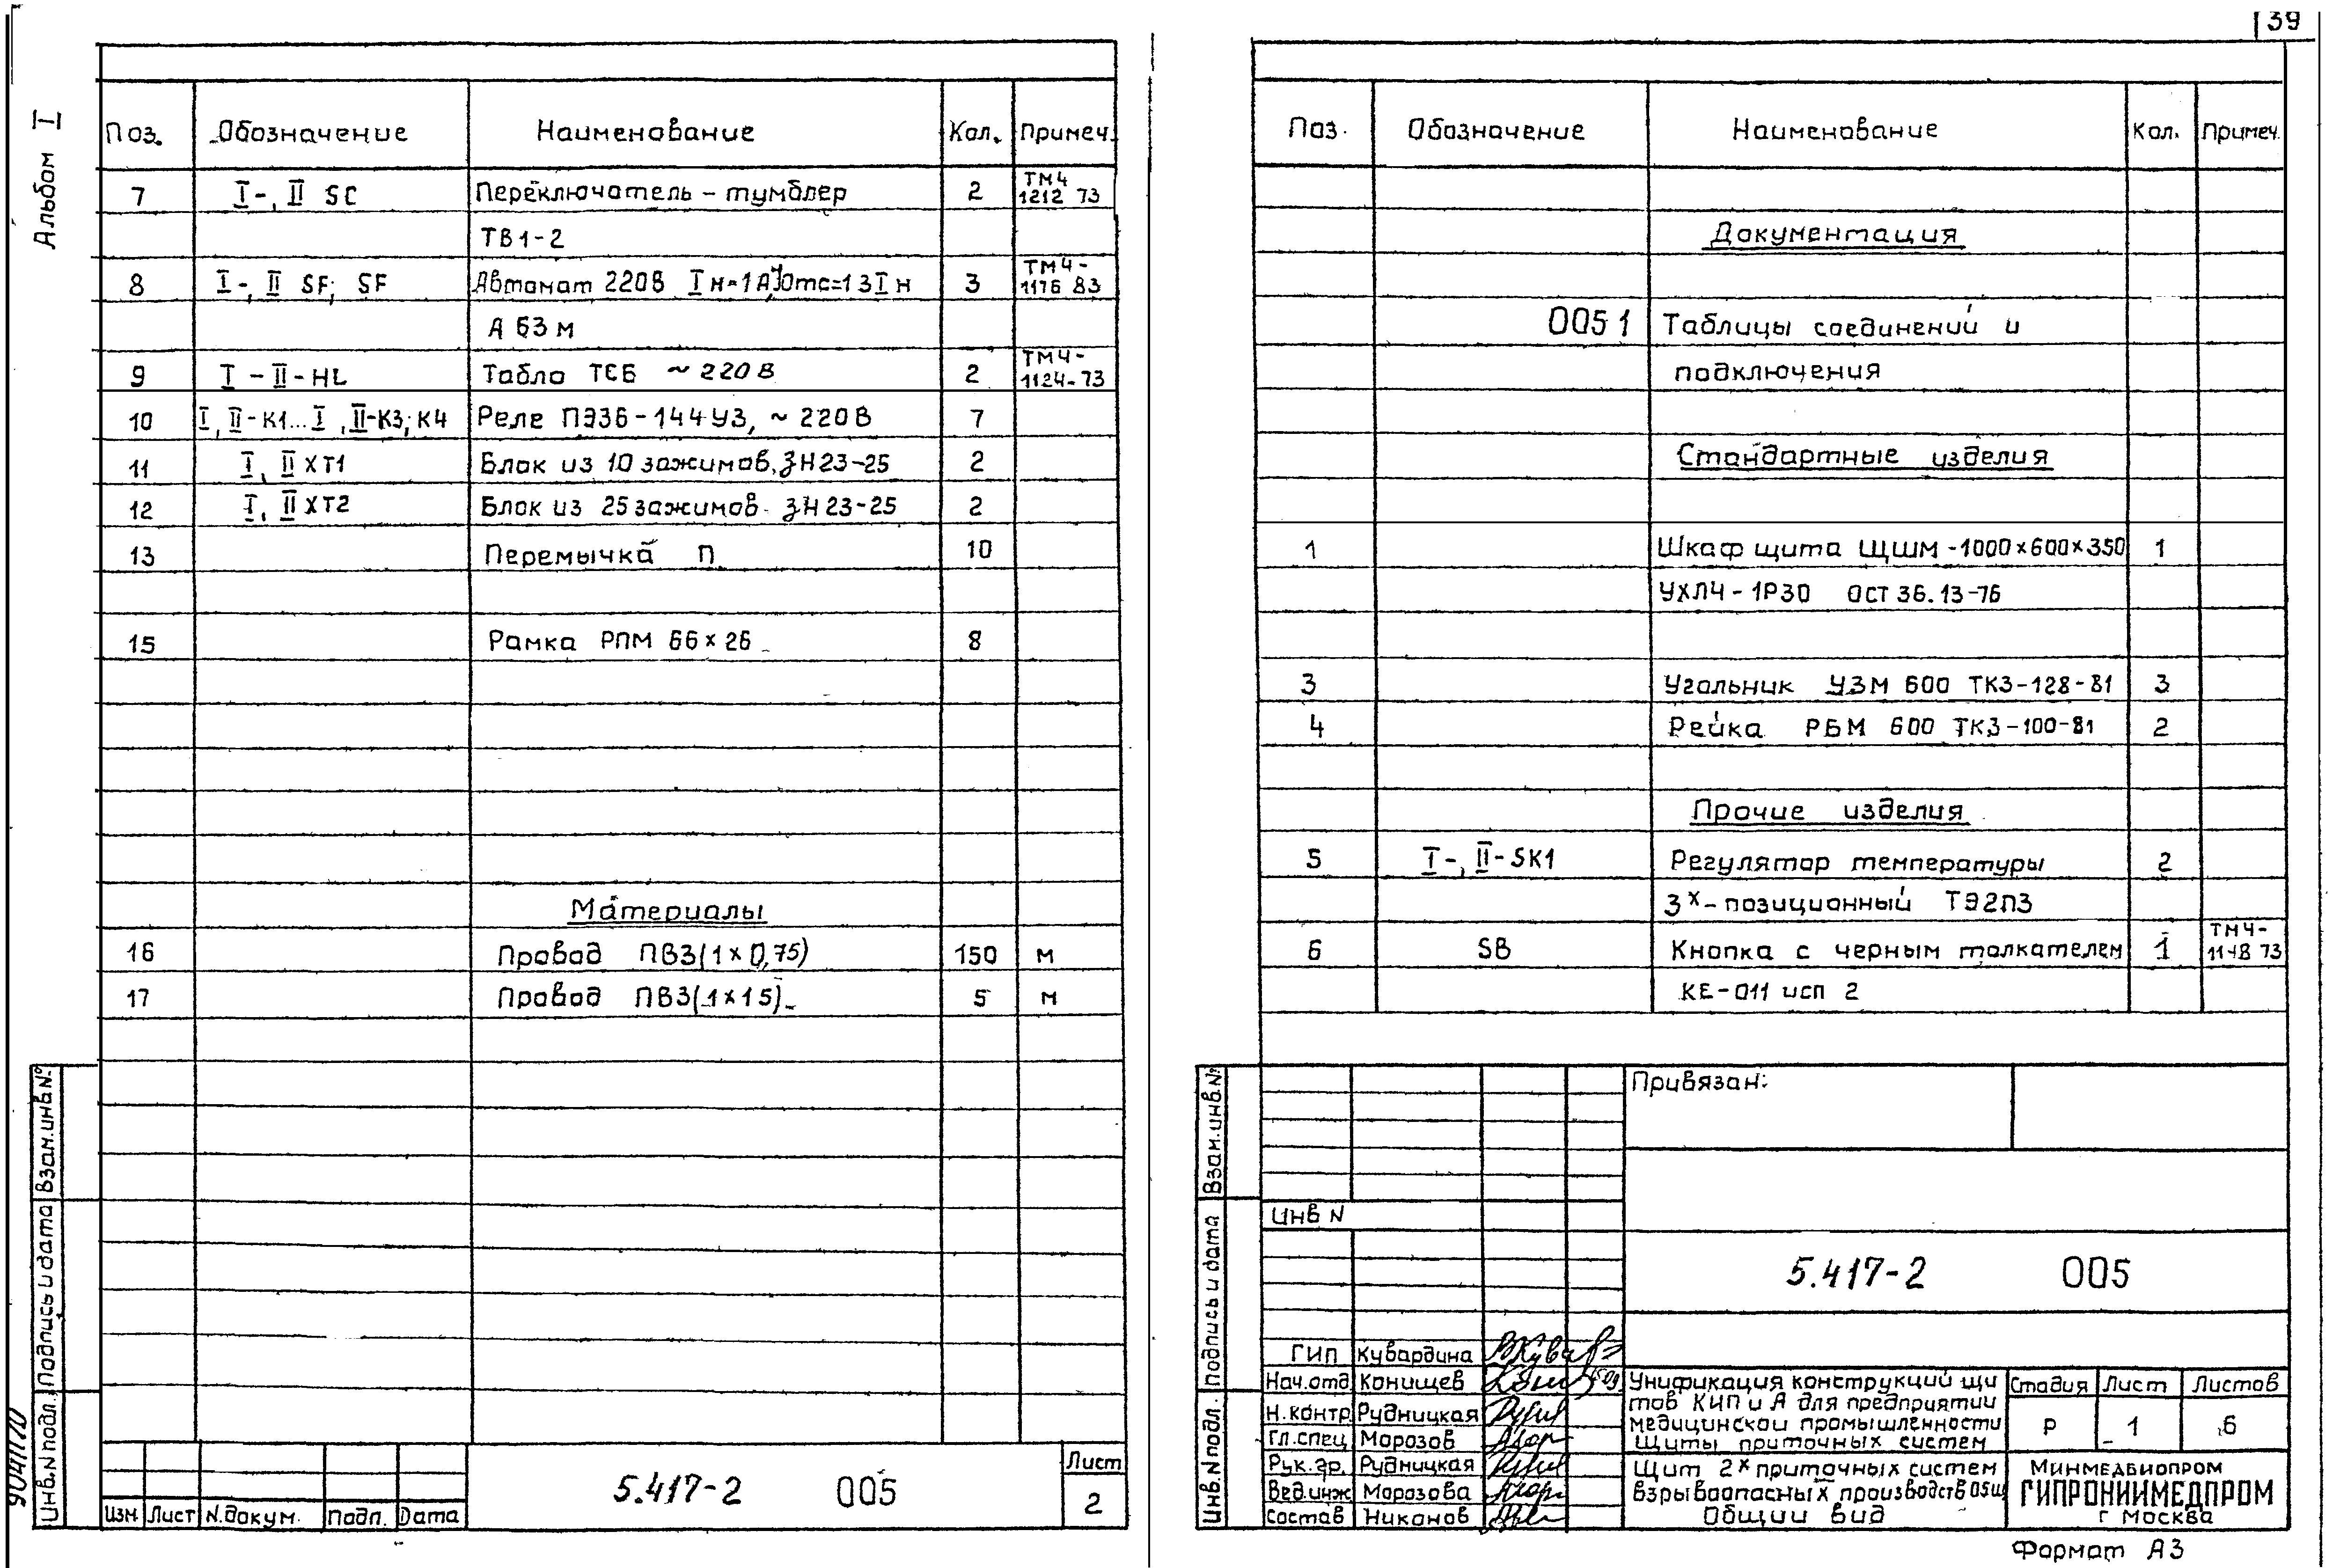 39
Альбом I
Поз. Обозначение Наименование Кол. Примеч.
7 I-, II SC Переключатель - тумблер 2 ТМ4 1212 73
ТВ1-2
8 I-, II SF; SF Автомат 220В Iн=1А, Iотс=1 3 Iн 3 ТМ4- 1176 83
А 63 м
9 I - II - HL Табло ТСБ ~ 220 В 2 ТМ4- 1124-73
10 I, II-К1...I, II-К3; К4 Реле ПЭ36-144У3, ~ 220В 7
11 I, II XT1 Блок из 10 зажимов, ЗН23-25 2
12 I, II XT2 Блок из 25 зажимов ЗН23-25 2
13 Перемычка П 10
15 Рамка РПМ 66 х 26 8
Материалы
16 Провод ПВ3(1 х 0,75) 150 м
17 Провод ПВ3(1 х 1 5) 5 м
Взам.инв.N°
Подпись и дата
Инв.N подл.
9041170
Изм Лист N.докум. Подп. Дата
5.417-2 005
Лист
2
Поз. Обозначение Наименование Кол. Примеч.
Документация
0051 Таблицы соединений и
подключения
Стандартные изделия
1 Шкаф щита ЩШМ -1000х600х350 1
УХЛ4 - IP30 ОСТ 36.13-76
3 Угольник УЗМ 600 ТК3-128-81 3
4 Рейка РБМ 600 ТК3-100-81 2
Прочие изделия
5 I-, II-SK1 Регулятор температуры 2
3х-позиционный ТЭ2П3
6 SB Кнопка с черным толкателем 1 ТМ4- 1148 73
КЕ-011 исп 2
Взам.инв.N°
Подпись и дата
Инв.N подл.
Привязан:
Инв N
5.417-2 005
ГИП Кувардина
Нач.отд Конищев
Н.контр Рудницкая
Гл.спец Морозов
Рук.гр. Рудницкая
Вед.инж Морозова
Состав Никонов
Унификация конструкций щи
тов КИП и А для предприятий
медицинской промышленности
Щиты приточных систем
Стадия Лист Листов
Р 1 6
Щит 2х приточных систем
взрывоопасных производств 05щ
Общий вид
Минмедбиопром
ГИПРОНИИМЕДПРОМ
г Москва
Формат А3